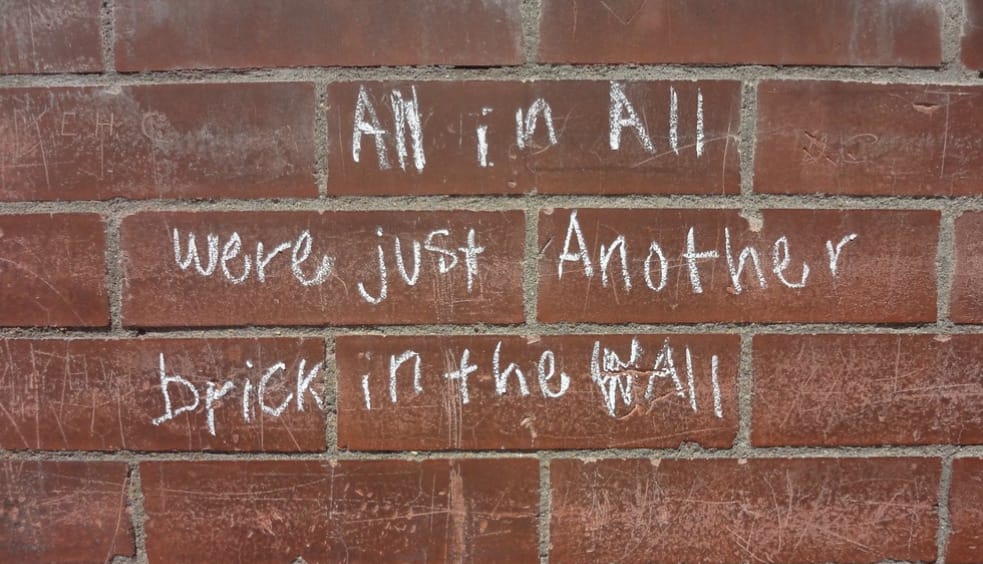 All in All
were just Another
brick in the WAll